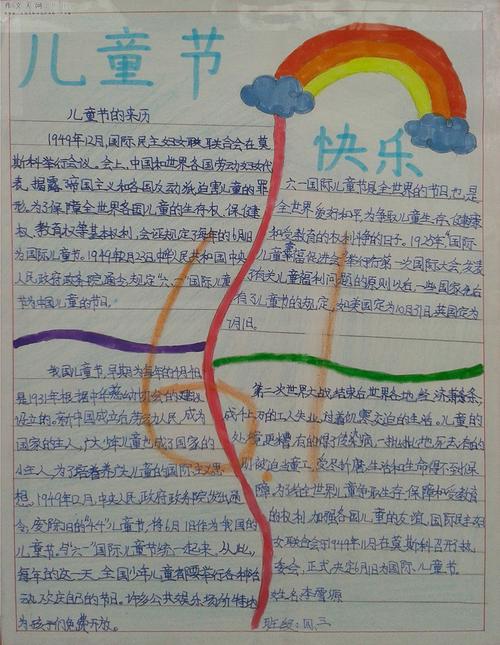 作文天网
儿童节
快乐
儿童节的来历
1949年12月,国际民主妇女联联合会在莫
斯科举行会议。会上,中国和世界各国劳动妇女代
表,揭露帝国主义和各国反动派迫害儿童的罪
形,为了保障全世界各国儿童的生存权、保健
权、教育权等基本权利,会证规定每年的6月1日
为国际儿童节。1949年12月23日,中华人民共和国中央
人民政府政务院通令规定"六一"国际儿童
节为中国儿童的节日。
六一国际儿童节是全世界的节日也是
全世界爱好和平为争取儿童生存、健康
和受教育的权利斗争的日子。1925年"国际
儿童幸福促进会"举行第一次国际大会,发表
了有关儿童福利问题的原则以后一些国家先后
有了儿童节的规定,如美国定为10月31日,英国定为
7月1日。
我国儿童节,早期为每年的4月4日
是1931年根据中华慈幼协会的建议
设立的。新中国成立后劳动人民,成为
国家的主人,广大少年儿童也成了国家的
小主人,为了培养广大儿童的国际主义思
想,1949年12月,中央人民政府政务院发出通
令,废除旧的"4·4"儿童节,将6月1日作为我国的
儿童节,与"六一"国际儿童节统一起来,从此,
每年的这一天,全国少年儿童都要举行各种活
动,欢庆自己的节日。许多公共娱乐场所特地
为孩子们免费开放。
第二次世界大战结束后世界各地,经济萧条,
成千上万的工人失业,过着饥寒交迫的生活。儿童的
处境更糟,有的得了传染病,一批批地死去,有的
则被迫当童工,受尽折磨,生活和生命得不到保
障,为了全世界儿童争取生存、保障和受教育
的权利,加强各国儿童的友谊,国际民主妇
女联合会于1949年11月在莫斯科召开执
委会,正式决定6月1日为国际儿童节。
姓名:李雪源
班级:四、三